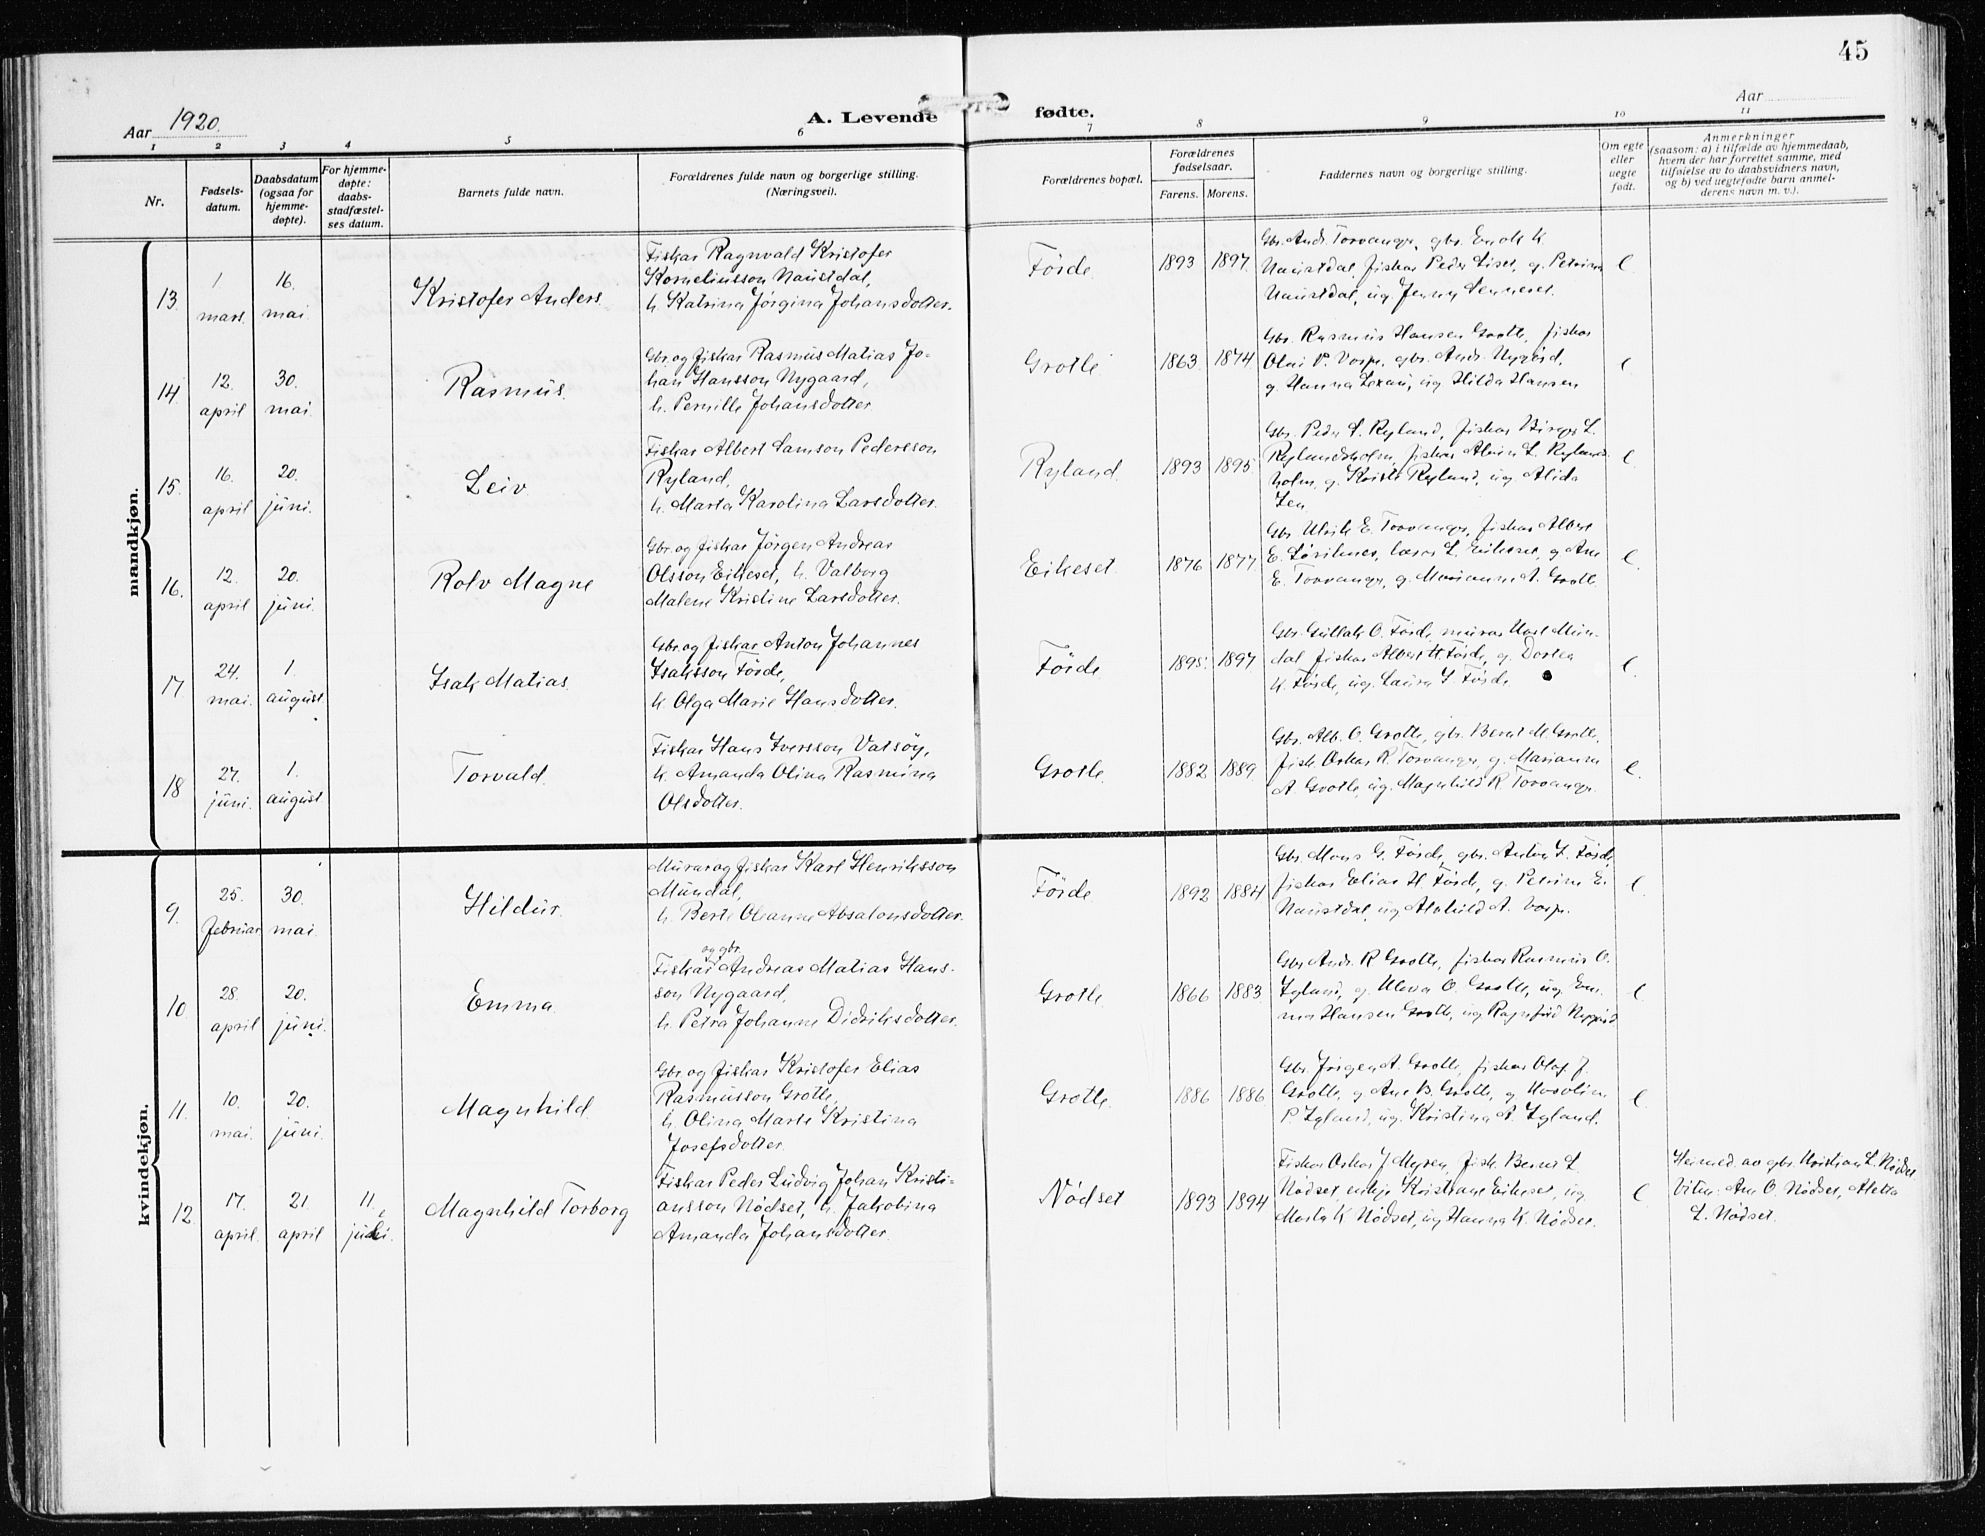 45
Aar 1920.
A. Levende fødte.
Aar
1 2 3 4 5 6 7 8 9 10 11
Nr.
Fødsels-
datum.
Daabsdatum
(ogsaa for
hjemme-
døpte).
For hjemme-
døpte:
daabs-
stadfæstel-
ses datum.
Barnets fulde navn.
Forældrenes fulde navn og borgerlige stilling.
(Næringsvei).
Forældrenes bopæl.
Forældrenes
fødselsaar.
Farens. Morens.
Faddernes navn og borgerlige stilling.
Om egte
eller
uegte
født.
Anmerkninger
(saasom: a) i tilfælde av hjemmedaab,
hvem der har forrettet samme, med
tilføielse av to daabsvidners navn,
og b) ved uegtefødte barn anmel-
derens navn m. v.).
mandkjøn.
13.
1
mars.
16.
mai.
Kristofer Anders.
Fiskar Ragnvald Kristofer
Korneliusson Naustdal,
h. Katrina Jörgina Johansdotter.
Förde.
1893 1897.
Gbr. Andr. Torvanger, gbr. Enok K.
Naustdal, fiskar Peder Liset, g. Petrina
Naustdal, ug Jenny Senneset.
e.
14.
12.
april
30.
mai.
Rasmus.
Gbr. og fiskar Rasmus Matias Jo-
han Hansson Nygaard,
h. Pernille Johansdotter.
Grotle
1863. 1874.
Gbr. Rasmus Hansen Grotle, fiskar
Olai P. Vosp, gbr. Andr. Nygård,
g. Hanna Lexau, ug. Hilda Hansen
e
15.
16.
april
20.
juni.
Leiv
Fiskar Albert Samson Pedersson
Ryland,
h. Marta Karolina Larsdotter.
Ryland.
1893 1895.
Gbr. Peder S. Ryland, fiskar Birger L.
Rylandsholm, fiskar Alvin L. Rylands-
holm, g. Kristi Ryland, ug. Alida
e.
16.
12.
april
20.
juni.
Rolv Magne
Gbr. og fiskar Jörgen Andreas
Olsson Eikeset, h. Valborg
Malene Kristine Larsdotter.
Eikeset.
1876 1877.
Gbr. Ulrik E. Torvanger, fiskar Albert
E. Torvanger, g. Marianne A. Grotle
e.
17
24.
mai.
1.
august.
Isak Matias.
Gbr. og fiskar Anton Johannes
Isaksson Förde,
h. Olga Marie Hansdotter.
Förde
1895. 1897.
Gbr. Gullak O. Förde, murar Karl Mun-
dal, fiskar Albert H. Förde, g. Dortea
K. Förde, ug. Laura I. Förde
e.
18
27.
juni.
1.
august.
Torvald.
Fiskar Hans Iversson Vatsöy,
h. Amanda Olina Rasmina
Olsdotter.
Grotle.
1882 1889
Gbr. Alb. O. Grotle, gbr. Bernt M. Grotle,
fisk. Oskar R. Torvanger, g. Marianne
A. Grotle, ug. Magnhild R. Torvanger.
e.
kvindekjøn.
9.
25.
februar
30.
mai.
Hildur.
Murar og fiskar Karl Henriksson
Mundal,
h. Berte Oleanne Absalonsdotter.
Förde.
1892 1884
Gbr. Mons G. Förde, gbr. Anton I. Förde,
fiskar Elias H. Förde, g. Petrine E.
Naustdal, ug Alvhild A. Vosp.
e.
10
28.
april
20.
juni.
Emma.
og gbr.
Fiskar Andreas Matias Hans-
son Nygaard,
h. Petra Johanne Didriksdotter.
Grotle
1866 1883
Gbr. Andr. R. Grotle, fiskar Rasmus O.
Igland, g. Aleva O. Grotle, ug. Em-
ma Hansen Grotle, ug Ragnfrid Nygård
e
11.
10.
mai.
20.
juni.
Magnhild
Gbr. og fiskar Kristofer Elias
Rasmusson Grotle,
h. Olina Marte Kristina
Josefsdotter.
Grotle.
1886 1886
Gbr. Jörgen A. Grotle, fiskar Olaf J.
Grotle, g Ane B. Grotle, g
P. Igland, ug. Kristina A. Igland.
e.
12.
17.
april.
21.
april
11.
juli.
Magnhild Torborg
Fiskar Peder Ludvig Johan Kristi-
ansson Nödset, h. Jakobina
Amanda Johansdotter.
Nödset
1893 1894
Fiskar Oskar J. Myren, fisk. Bernt L.
Nödset, enkje Kristiane Eikeset, ug.
Marta K. Nödset, ug Hanna K. Nödset.
e.
Heimed. av gbr. Kristian L. Nödset
Vitn: Ane O. Nödset, Aletta
L. Nödset.